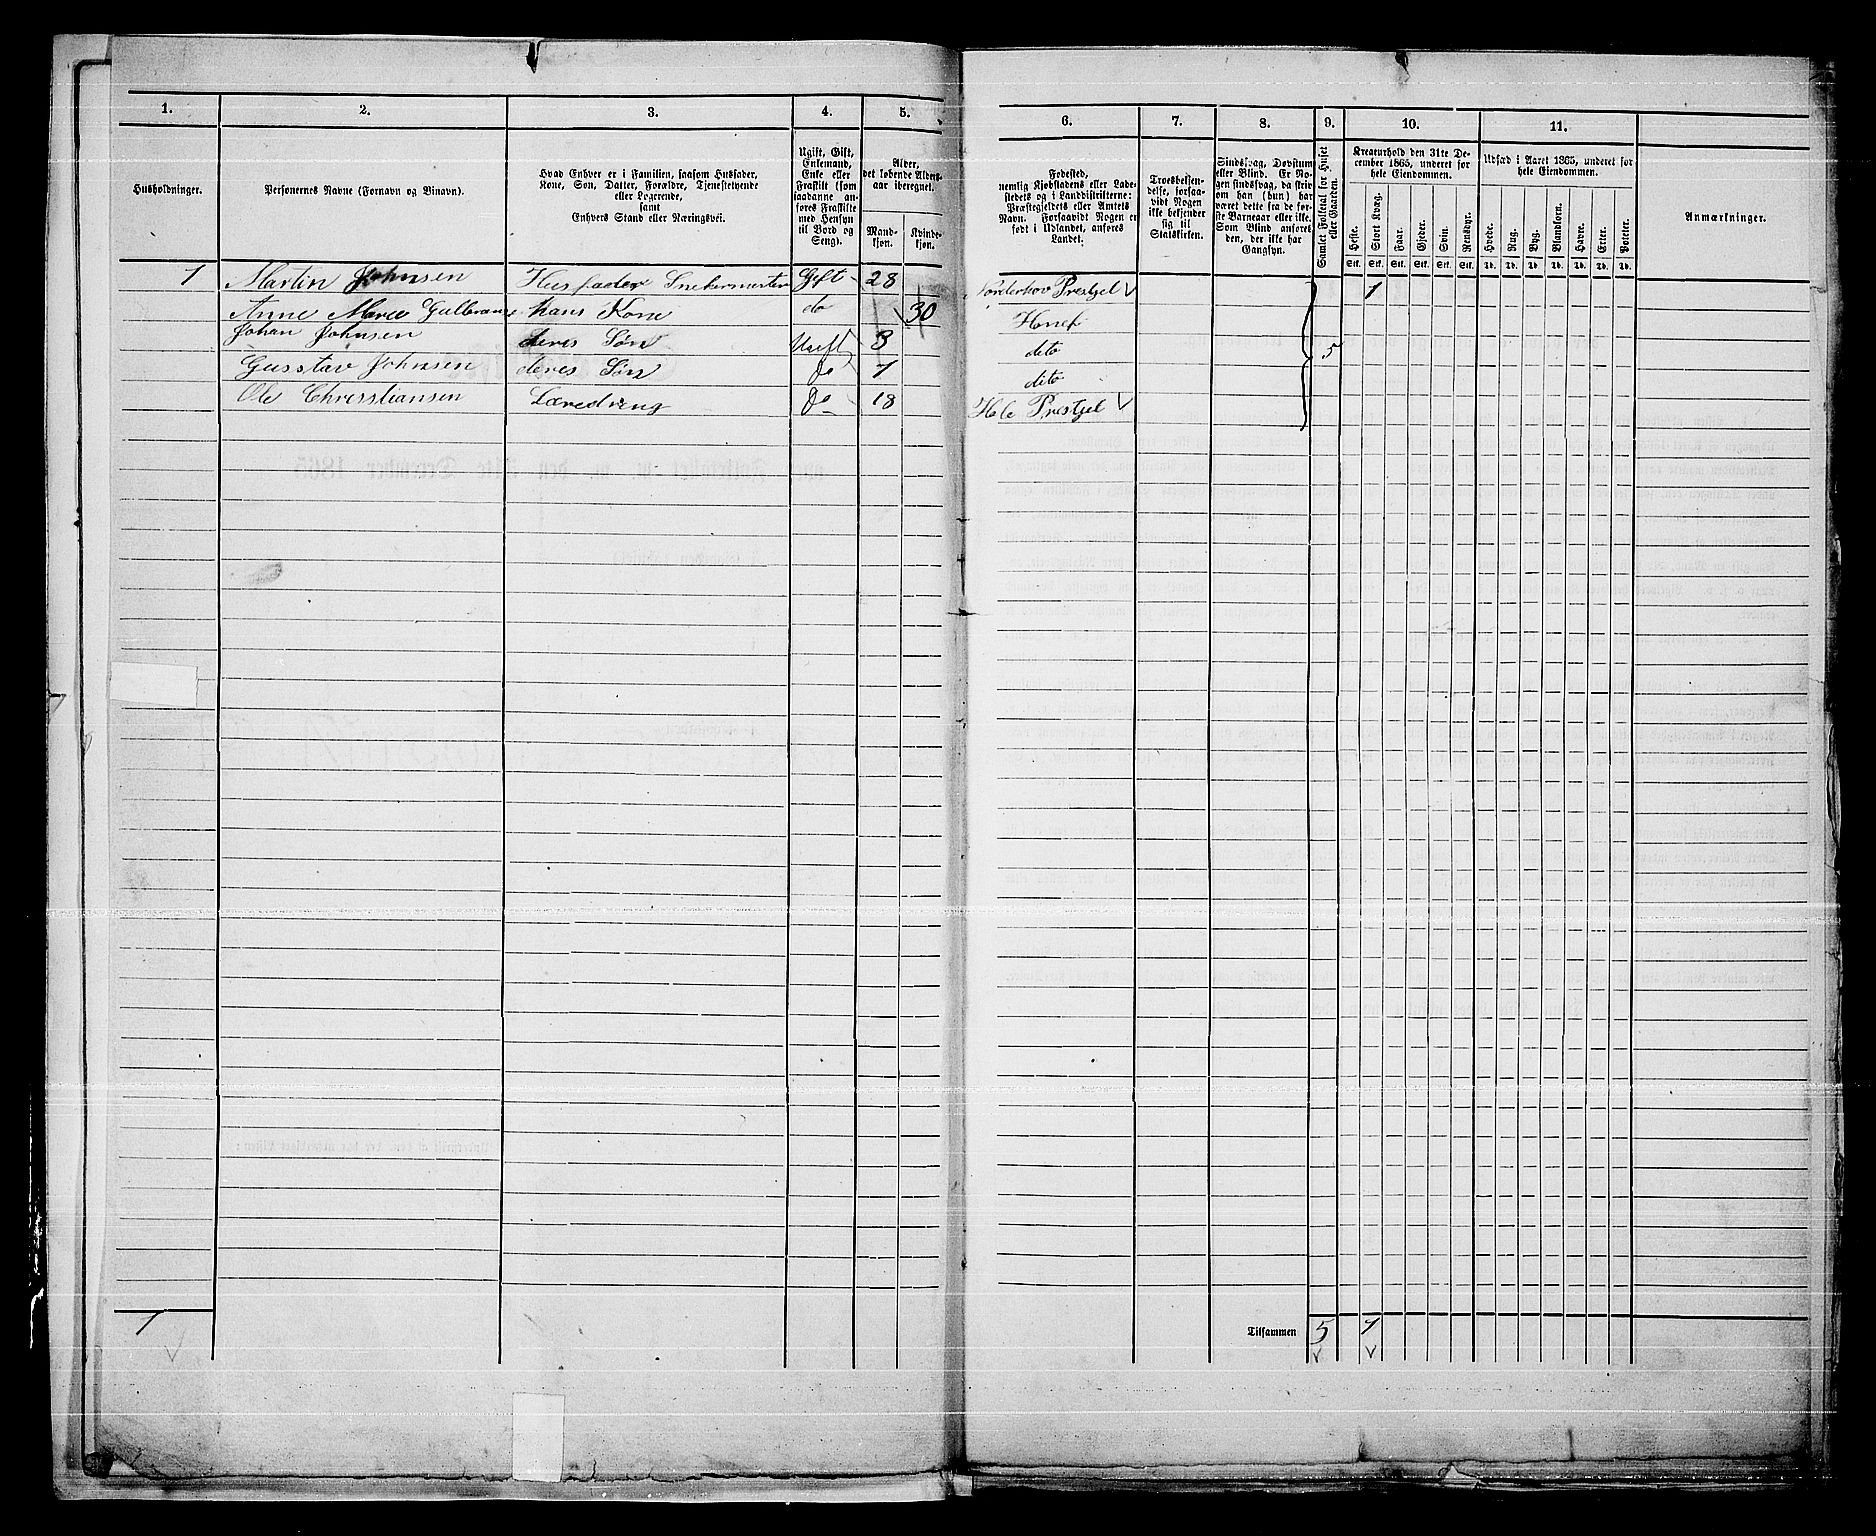 1. 2. 3. 4. 5. 6. 7. 8. 9. 10. 11.
Husholdninger.
Personernes Navne (Fornavn og Binavn).
Hvad Enhver er i Familien, saasom Husfader,
Kone, Søn, Datter, Forældre, Tjenestetyende
eller Logerende,
samt
Enhvers Stand eller Næringsvei.
Ugift, Gift,
Enkemand,
Enke eller
Fraskilt (som
saadanne an-
føres Fraskilte
med Hensyn
til Bord og
Seng).
Alder,
det løbende Alders-
aar iberegnet.
Mand-
kjøn.
Kvinde-
kjøn.
Fødested,
nemlig Kjøbstadens eller Lade-
stedets og i Landdistrikterne:
Præstegjeldets eller Amtets
Navn. Forsaavidt Nogen er
født i Udlandet, anføres
Landet.
Troesbekjen-
delse, forsaa-
vidt Nogen
ikke bekjender
sig til
Statskirken.
Sindssvag, Døvstum
eller Blind. Er No-
gen sindssvag, da skriv
om han (hun) har
været dette fra de før-
ste Barneaar eller ikke.
Som Blind anføres
den, der ikke har
Gangsyn.
Samlet Folketal for Huset
eller Gaarden.
Kreaturhold den 31te De-
cember 1865, underet for
hele Eiendommen.
Heste. Stort Kvæg. Faar. Gjeder. Svin. Rensdyr.
Stk. Stk. Stk. Stk. Stk. Stk.
Udsæd i Aaret 1865, underet for
hele Eiendommen.
Hvede. Rug. Byg. Blandkorn. Havre. Erter. Poteter.
Td. Td. Td. Td. Td. Td. Td.
Anmærkninger.
1 Martin Johnsen Husfader Snekermester Gift 28 Norderhov Prestgel 1
Anne Marea Gulbrans hans Kone do 30 Honef
Johan Johnsen deres Søn Ugift 3 dito 5
Gusstav Johnsen deres Søn do 1 dito
Ole Chresstiansen Læredreng do 18 Hole Prestgel
1 Tilsammen 5 1